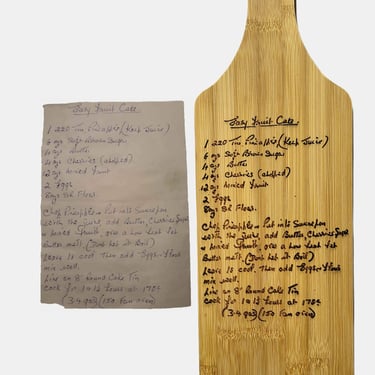 Easy Fruit Cake.
1 220 Tin Pineapple (Keep Juice)
6 ozs Soft Brown Sugar
4 ozs Butter
4 ozs Cherries (chopped)
12 ozs mixed Fruit
2 Eggs
8ozs S.R Flour.
Chop Pineapple & Put into Saucepan
with the Juice, add Butter, Cherries, Sugar
& mixed Fruits, give a low heat for
Butter melt. (Dont let it Boil)
Leave to cool, Then add Eggs & Flour
mix well.
Line an 8" Round Cake Tin
Cook for 1¼ to 1½ hours at
(3-4 gas) (150 fan oven)
Easy Fruit Cake.
1 220 Tin Pineapple (Keep Juice)
6 ozs Soft Brown Sugar
4 ozs Butter
4 ozs Cherries (chopped)
12 ozs mixed Fruit
2 Eggs
8ozs S.R Flour.
Chop Pineapple & Put into Saucepan
with the Juice, add Butter, Cherries, Sugar
& mixed Fruits, give a low heat for
Butter melt. (Dont let it Boil)
Leave to cool, Then add Eggs & Flour
mix well.
Line an 8" Round Cake Tin
Cook for 1¼ to 1½ hours at
(3-4 gas) (150 fan oven)